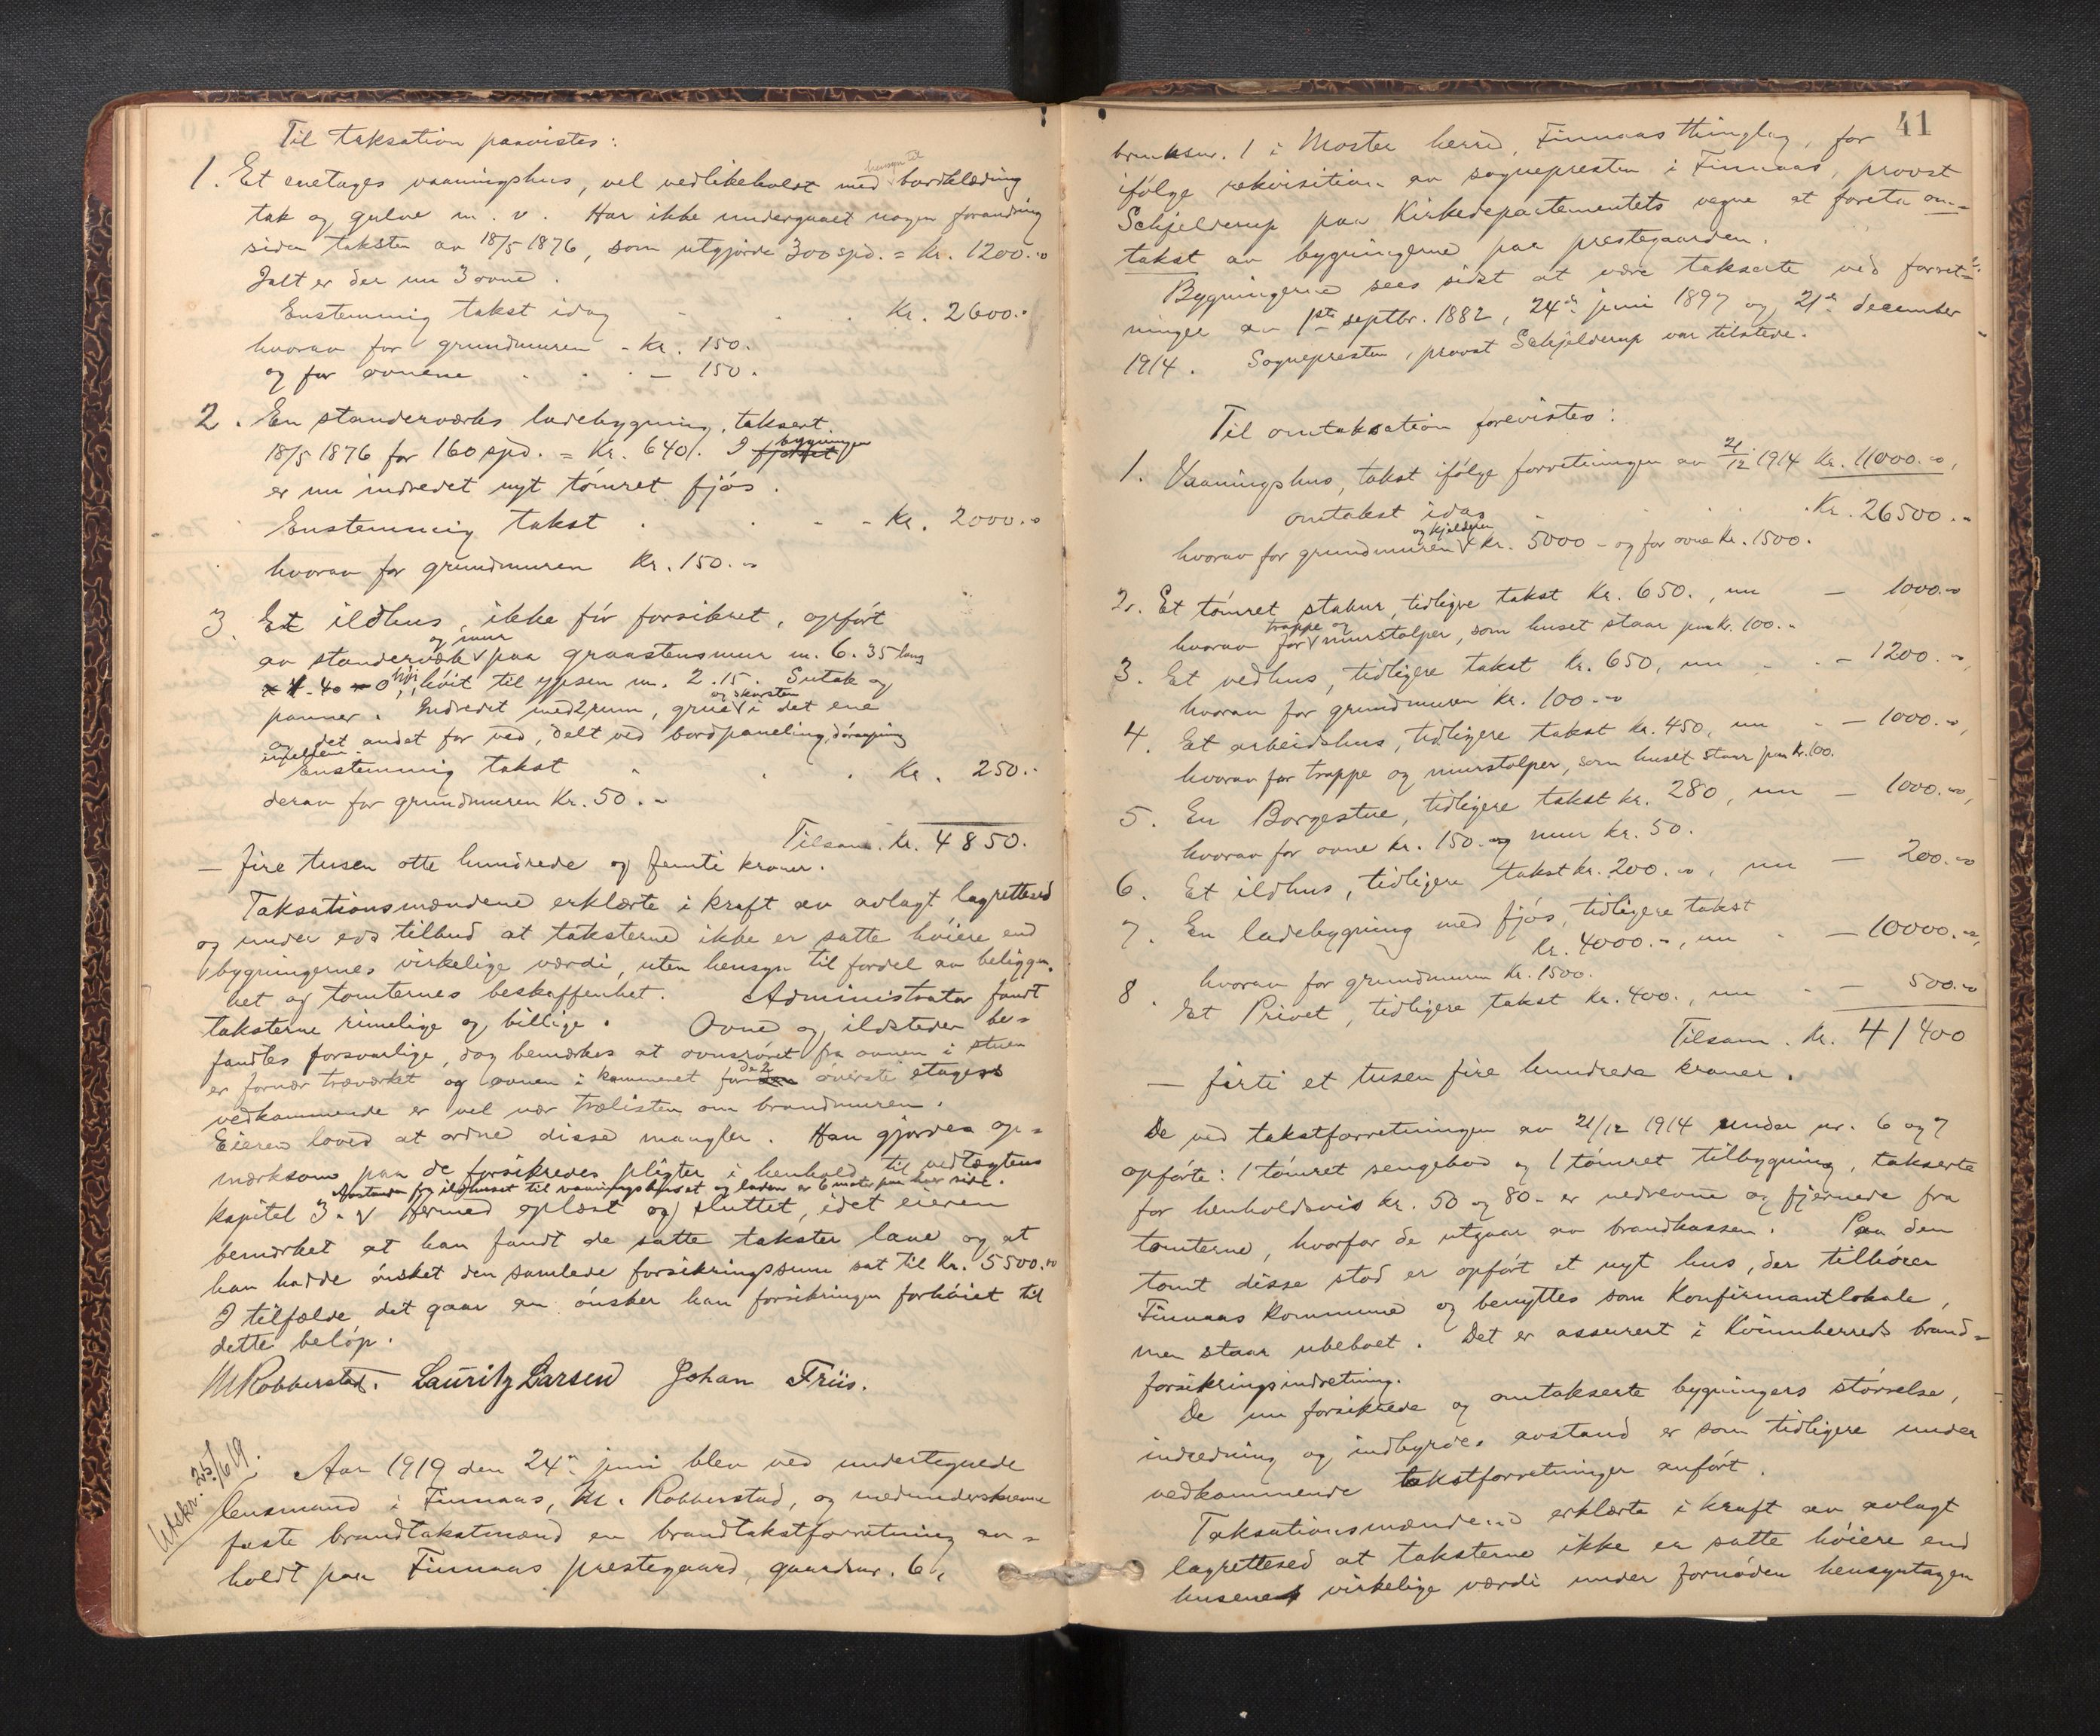 Til taksation paavistes:
1. Et enetages vaaningshus, vel vedlikeholdt med hensyn til bordklædning
tak og gulve m. v. Har ikke undergaaet nogen forandring
siden taksten av 18/5 1876, som utgjorde 300 spd. = Kr. 1200.-
Ialt er der nu 3 ovne.
Enstemmig takst idag - . . Kr. 2600.-
hvorav for grundmuren - Kr. 150.
og for ovnene . . . — 150.
2. En standerværks ladebygning, taksert
18/5 1876 for 160 spd. = Kr. 640/. I fjøset bygningen
er nu indredet nyt tømret fjøs.
Enstemmig takst . . - - Kr. 2000.-
hvorav for grundmuren Kr. 150.-
3. Et ildhus, ikke før forsikret, opført
av standerværk og mur paa graastensmur m. 6.35 lang
4.40, høit til ypsen m. 2.15. Sutak og
panner. Indredet med 2 rum, grue og skorsten i det ene
og det andet for ved, delt ved bordpaneling,
Enstemmig takst . . . Kr. 250.-
derav for grundmuren Kr. 50.-
Tilsam. Kr. 4850.
— fire tusen otte hundrede og femti kroner.
Taksationsmændene erklærte i kraft av avlagt lagrettesed
og under eds tilbud at taksterne ikke er satte høiere end
bygningernes virkelige værdi, uten hensyn til fordel av beliggen-
het og tomternes beskaffenhet. Administrator fandt
taksterne rimelige og billige. Ovne og ildsteder be-
fandtes forsvarlige, dog bemærkes at ovnsrøret fra ovnen i stuen
er fornær træverket og ovnen i kammeret for den de 2 øverste etagers
vedkommende er vel nær trælisten om brandmuren.
Eieren loved at ordne disse mangler. Han gjordes op-
mærksom paa de forsikredes pligter i henhold til vedtægtens
Avstanden fra ildhuset til vaaningshuset og laden er 6 meter paa hver side.
kapitel 3. Hermed oplæst og sluttet, idet eieren
bemerket at han fandt de satte takster lave og at
han hadde ønsket den samlede forsikringssum sat til Kr. 5500.-
I tilfælde det gaar an ønsker han forsikringen forhøiet til
dette beløp.
M Robberstad. Lauritz Larsen Johan Friis.
Utskr. 25/6 19.
Aar 1919 den 24de juni blev ved undertegnede
lensmand i Finnaas, M. Robberstad, og medunderskrevne
faste brandtakstmænd en brandtakstforretning av-
holdt paa Finnaas prestegaard, gaardsnr. 6,
41
bruksnr. 1 i Moster herred, Finnaas thinglag, for
ifølge rekvisition av sognepresten i Finnaas, provst
Schjelderup paa Kirkedepartementets vegne at foreta om-
takst av bygningerne paa prestegaarden.
Bygningerne sees sidst at være takserte ved forret-
ninger av 1ste septbr. 1882, 24de juni 1897 og 21de december
1914. Sognepresten, provst Schjelderup var tilstede.
Til omtaksation forevistes:
1. Vaaningshus, takst ifølge forretningen av 21/12 1914 Kr. 11000.-,
omtakst idag . . . . Kr. 26500.-
hvorav for grundmuren og kjelderen Kr. 5000 - og for ovne Kr. 1500.
2. Et tømret stabur, tidligre takst Kr. 650., nu — 1000.-
hvorav for trappe og murstolper, som huset staar paa Kr. 100.-
3. Et vedhus, tidligere takst Kr. 650, nu . . — 1200.-,
hvorav for grundmuren Kr. 100.-
4. Et arbeidshus, tidligere takst Kr. 450, nu - — 1000.-,
hvorav for trappe og murstolper, som huset staar paa Kr. 100.
5. En Borgestue, tidligere takst Kr. 280, nu — 1000.-,
hvorav for ovne Kr. 150.- og mur Kr. 50.
6. Et ildhus, tidligere takst Kr. 200.-, nu — 200.-
7. En ladebygning med fjøs, tidligere takst
Kr. 4000.-, nu . — 10000.-,
hvorav for grundmuren Kr. 1500.
8. Et Privet, tidligere takst Kr. 400., nu - — 500.-
Tilsam. Kr. 41400
— firti et tusen fire hundrede kroner.
De ved takstforretningen av 21/12 1914 under nr. 6 og 7
opførte: 1 tømret sengebod og 1 tømret tilbygning, takserte
for henholdsvis Kr. 50 og 80- er nedrevne og fjernede fra
tomterne, hvorfor de utgaar av brandkassen. Paa den
tomt disse stod er opført et nyt hus, der tilhører
Finnaas Kommune og benyttes som Konfirmantlokale,
men staar ubeboet. Det er assurert i Kvinnherreds brand-
forsikringsindretning.
De nu forsikrede og omtakserte bygningers størrelse,
indredning og indbyrdes avstand er som tidligere under
vedkommende takstforretninger anført.
Taksationsmændene erklærte i kraft av avlagt
lagrettesed at taksterne ikke er satte høiere end
husenes virkelige værdi under fornøden hensyntagen